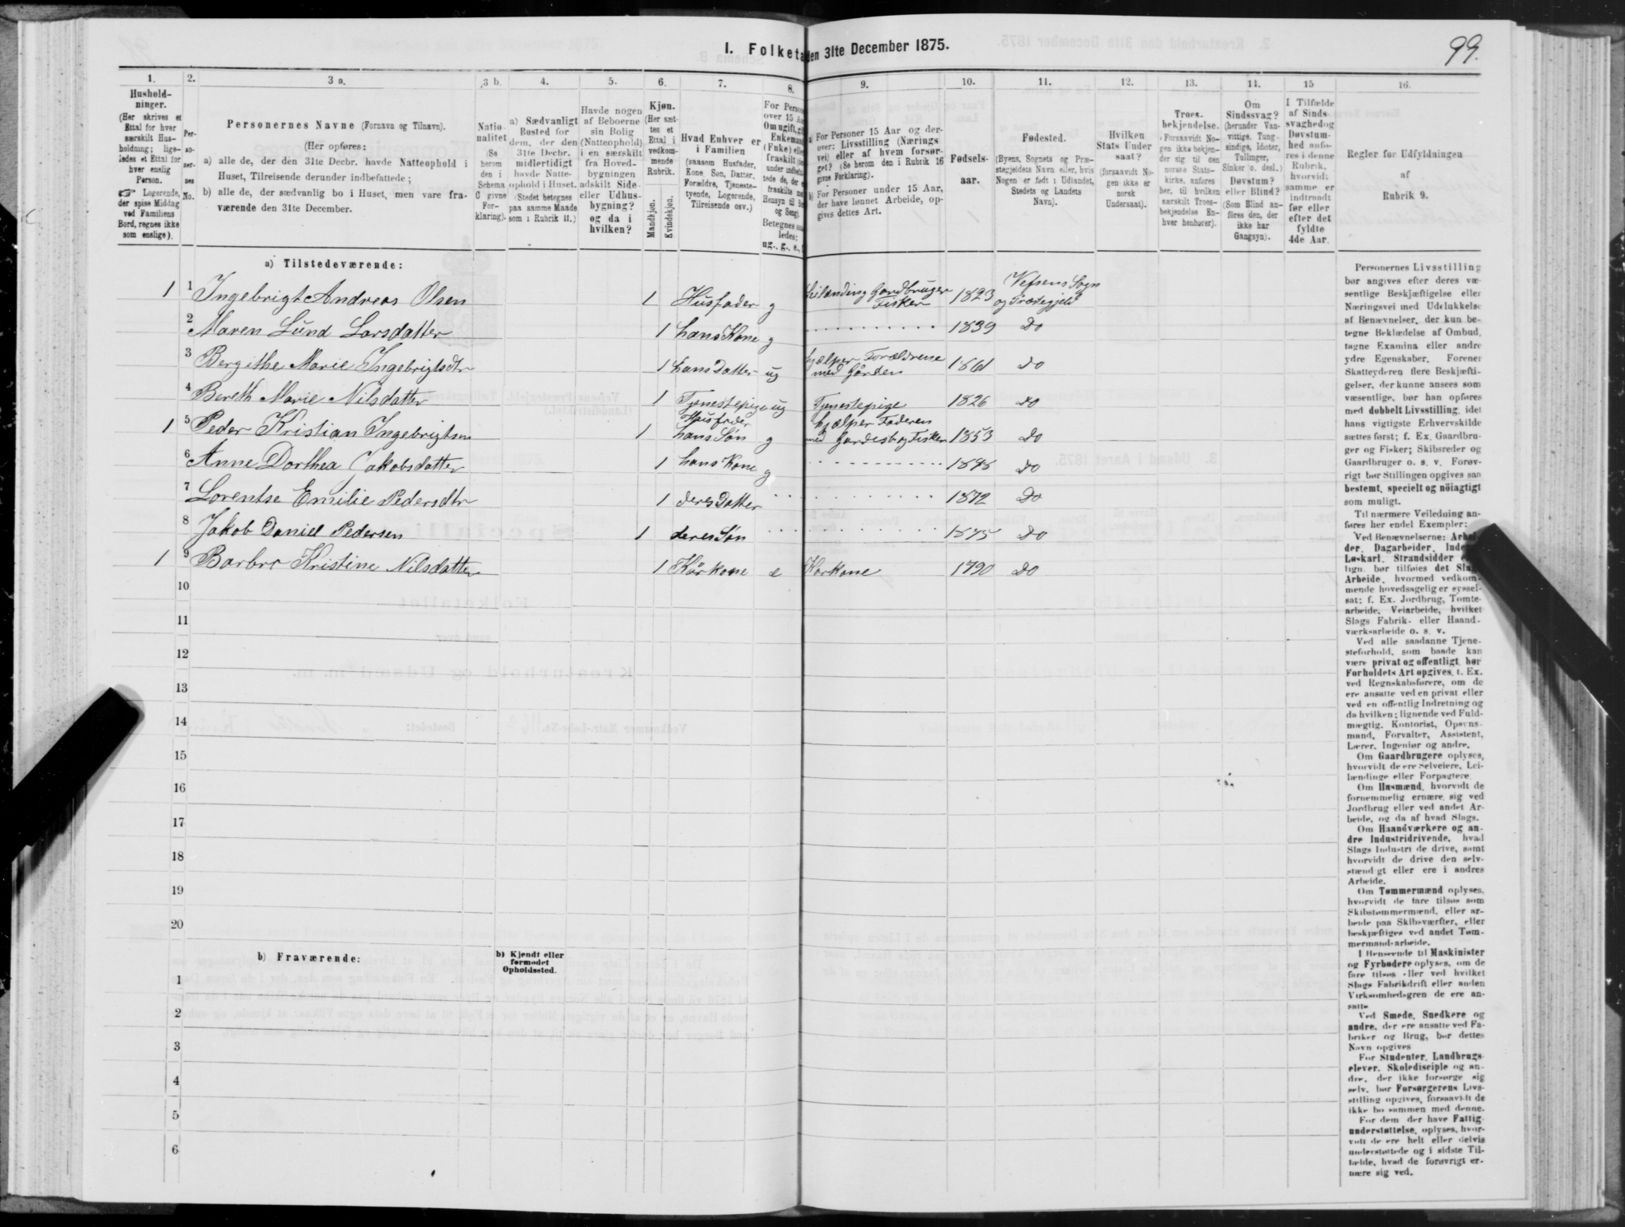 I. Folketa den 31te December 1875.
99.
1.
2.
3 a.
3 b.
4.
5.
6.
7.
8.
9.
10.
11.
12.
13.
14.
15
16.
Hushold-
ninger.
(Her skrives et
Ettal for hver
særskilt Hus-
holdning; lige-
ledes et Ettal for
hver enslig
Person.
☞ Logerende,
der spise Middag
ved Familiens
Bord, regnes ikke
som enslige).
Per-
so-
ner-
nes
No.
Personernes Navne (Fornavn og Tilnavn).
(Her opføres:
a) alle de, der den 31te Decbr. havde Natteophold i
Huset, Tilreisende derunder indbefattede;
b) alle de, der sædvanlig bo i Huset, men vare fra-
værende den 31te December.
Natio
nalitet
(Se
herom
den i
Schema
C givne
For-
klaring).
a) Sædvanligt
Bosted for
dem, der den
31te Decbr.
midlertidigt
havde Natte-
ophold i Huset.
(Stedet betegnes
paa samme Maade
som i Rubrik 11.)
Havde nogen
af Beboerne
sin Bolig
(Natteophold)
i en særskilt
fra Hoved-
bygningen
adskilt Side-
eller Udhus-
bygning?
og da i
hvilken?
Kjøn.
(Her sæt-
tes et
Ettal i
vedkom-
mende
Rubrik.
Mandkjøn.
Kvindekjøn.
Hvad Enhver er
i Familien
(saasom Husfader,
Kone Søn, Datter,
Forældre, Tjeneste-
tyende, Logerende,
Tilreisende osv.)
For Perso
over 15 Aa
Om ugift, g
Enkeman
(Enke) elle
fraskilt
ug., g., e.,
For Personer 15 Aar og der-
over: Livsstilling (Nærings
vei) eller af hvem forsør-
get? (Se herom den i Rubrik 16
givne Forklaring).
For Personer under 15 Aar,
der have lønnet Arbeide, op-
gives dettes Art.
Fødsels-
aar.
Fødested.
(Byens, Sognets og Præ-
stegjeldets Navn eller, hvis
Nogen er født i Udlandet,
Stedets og Landets
Navn).
Hvilken
Stats Under
saat?
(forsaavidt No-
gen ikke er
norsk
Undersaat).
Troes-
bekjendelse.
(Forsaavidt No-
gen ikke bekjen-
der sig til den
norske Stats-
kirke, anføres
her, til hvilken
særskilt Troes-
bekjendelse En-
hver henhører).
Om
Sindssvag?
(herunder Van-
vittige, Tung-
sindige, Idioter,
Tullinger,
Sinker o. desl.)
Døvstum?
eller Blind?
(Som Blind an-
føres den, der
ikke har
Gangsyn).
I Tilfælde
af Sinds-
svaghed og
Døvstum-
hed anfø-
res i denne
Rubrik,
hvorvidt
samme er
indtraadt
før eller
efter det
fyldte
4de Aar.
Regler for Udfyldningen
af
Rubrik 9.
a) Tilstedeværende:
1 1 Ingebrigt Andreas Olsen 1 Husfader g Leilænding Gaardbruger Fisker 1823 Vefsens Sogn og Præstegjeld
2 Maren Lund Larsdatter 1 hans Kone g 1839 Do
3 Bergithe Marie Ingebrigtsdtr 1 hans Datter ug hjælper Forældrene med Gården 1861 do
4 Bereth Marie Nilsdatter 1 Tjenestepige ug Tjenestepige 1826 do
1 5 Peder Kristian Ingebrigtsen 1 Husfader hans Søn g hjælper Faderen med Gardsb og Fisker 1853 do
6 Anne Dorthea Jakobsdatter 1 hans Kone g 1848 do
7 Lorentse Emilie Pedersdtr 1 deres Datter 1872 Do
8 Jakob Daniel Pedersen 1 deres Søn 1875 Do
1 9 Barbro Kristine Nilsdatter 1 Kårkone e Kårkone 1790 Do
10
11
12
13
14
15
16
17
18
19
20
b) Fraværende:
b) Kjendt eller
formodet
Opholdssted.
1
2
3
4
5
6
Personernes Livsstilling
bør angives efter deres væ-
sentlige Beskjæftigelse eller
Næringsvei med Udelukkelse
af Benævnelser, der kun be-
tegne Beklædelse af Ombud,
tagne Examina eller andre
ydre Egenskaber. Forener
Skatteyderen flere Beskjæfti-
gelser, der kunne ansees som
væsentlige, bør han opføres
med dobbelt Livsstilling, idet
hans vigtigste Erhvervskilde
sættes først; f. Ex. Gaardbru-
ger og Fisker; Skibsreder og
Gaardbruger o. s. v. Forøv-
rigt bør Stillingen opgives saa
bestemt, specielt og nöiagtigt
som muligt.
Til nærmere Veiledning an-
føres her endel Exempler:
Ved Benævnelserne: Arbei
der, Dagarbeider, Inde
Løskarl, Strandsidder
lign. bør tilføies det Slags
Arbeide, hvormed vedkom-
mende hovedsagelig er syssel-
sat; f. Ex. Jordbrug, Tomte-
arbeide, Veiarbeide, hvilket
Slags Fabrik- eller Haand-
værksarbeide o. s. v.
Ved alle saadanne Tjene-
steforhold, som baade kan
være privat og offentligt, bør
Forholdets Art opgives, t. Ex.
ved Regnskabsførere, om de
ere ansatte ved en privat eller
ved en offentlig Indretning og
da hvilken; lignende ved Fuld-
mægtig, Kontorist, Opsyns-
mand, Forvalter, Assistent,
Lærer, Ingeniør og andre.
Om Gaardbrugere oplyses,
hvorvidt de ere Selveiere, Lei-
lændinge eller Forpagtere.
Om Husmænd, hvorvidt de
fornemmelig ernære sig ved
Jordbrug eller ved andet Ar-
beide, og da af hvad Slags.
Om Haandværkere og an-
dre Industridrivende, hvad
Slags Industri de drive, samt
hvorvidt de drive den selv-
stændigt eller ere i andres
Arbeide.
Om Tømmermænd oplyses,
hvorvidt de fare tilsøs som
Skibstømmermænd, eller ar-
beide paa Skibsværfter, eller
beskjæftiges ved andet Tøm-
mermandsarbeide.
I Henseende til Maskinister
og Fyrbødere oplyses, om de
fare tilsøs eller ved hvilket
Slags Fabrikdrift eller anden
Virksomhedsgren de ere an-
satte.
Ved Smede, Snedkere og
andre, der ere ansatte ved Fa-
briker og Brug, bør dettes
Navn opgives
For Studenter, Landbrugs-
elever, Skoledisciple og an-
dre, der ikke forsørge sig
selv, bør Forsørgerens Livs-
stilling opgives, forsaavidt de
ikke bo sammen med denne.
For dem der have Fattig-
understøttelse, oplyses, hvor-
vidt de ere helt eller delvis
understøttede og i sidste Til-
fælde, hvad de forøvrigt er-
nære sig ved.